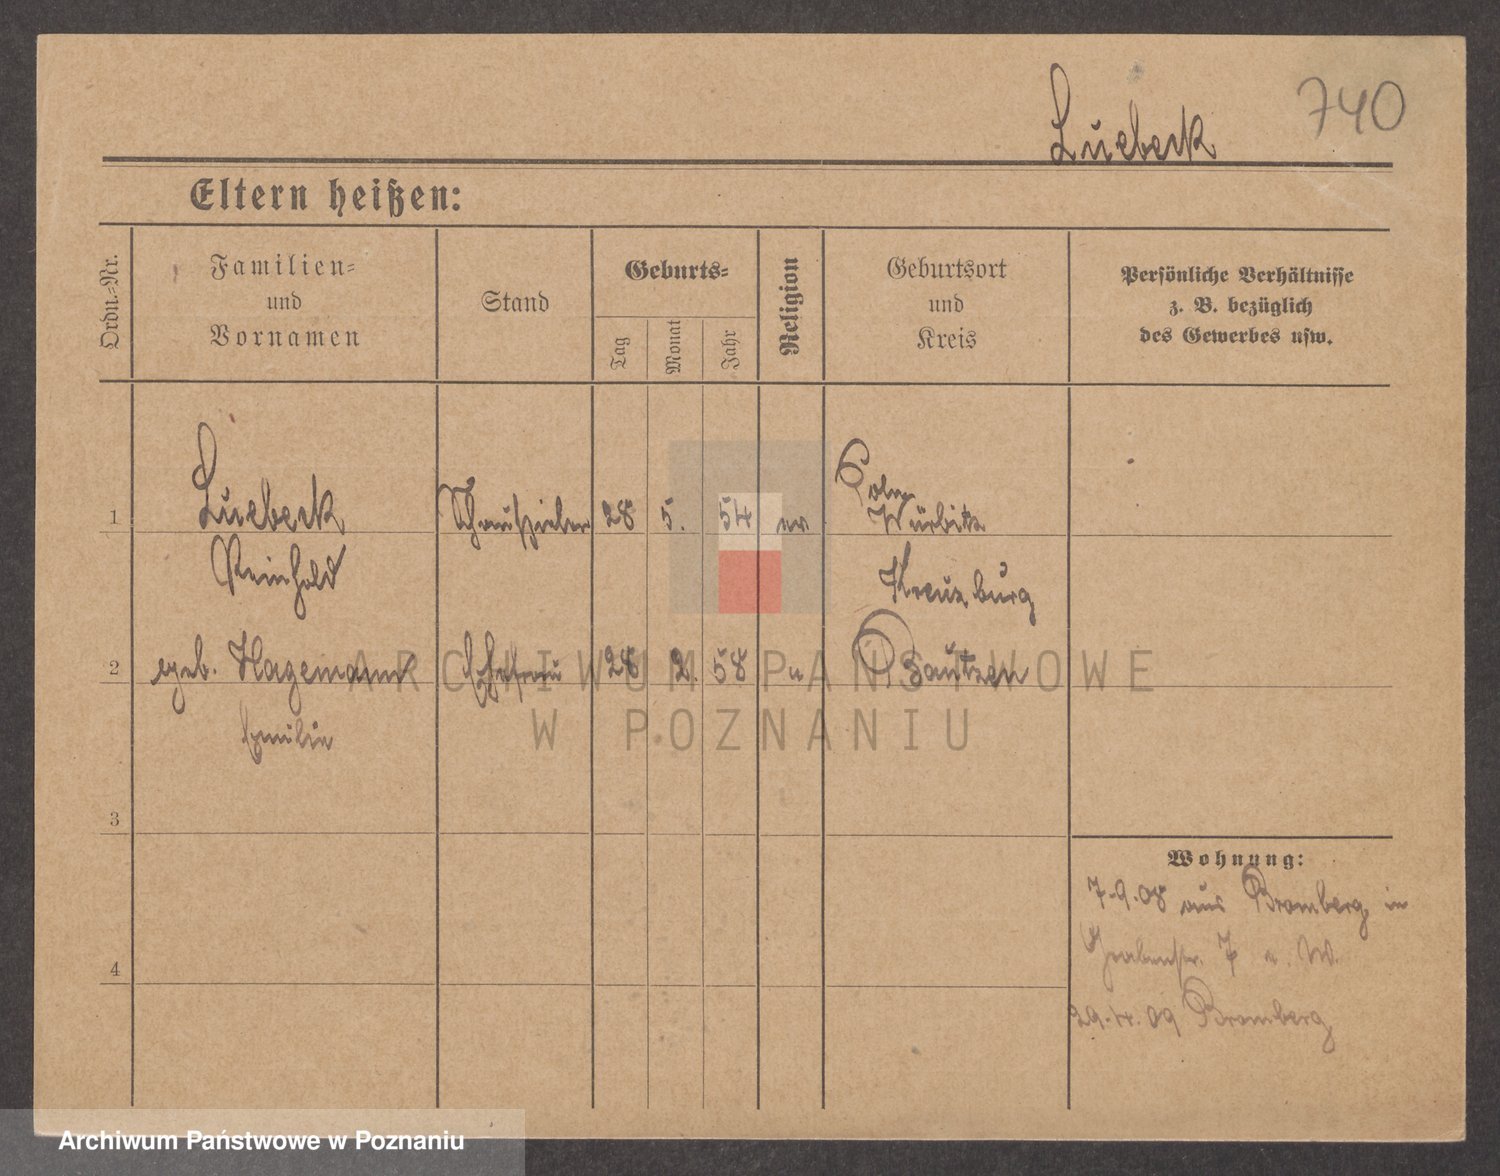 740
Luebeck
Eltern heißen:
Ordn.-Nr.
Familien-
und
Vornamen
Stand
Geburts-
Tag
Monat
Jahr
Religion
Geburtsort
und
Kreis
Persönliche Verhältnisse
z. B. bezüglich
des Gewerbes usw.
1 Luebeck Schauspieler 28 5. 54 ev Würbitz
Reinhold Kreuzburg
2 geb. Hagemann Ehefrau 28 2. 58 " Bautzen
Emilie
3
4
Wohnung:
7.9.08 aus Bromberg in
Grabenstr. 7 W.
29.4.09 Bromberg
ARCHIWUM PAŃSTWOWE
W POZNANIU
Archiwum Państwowe w Poznaniu